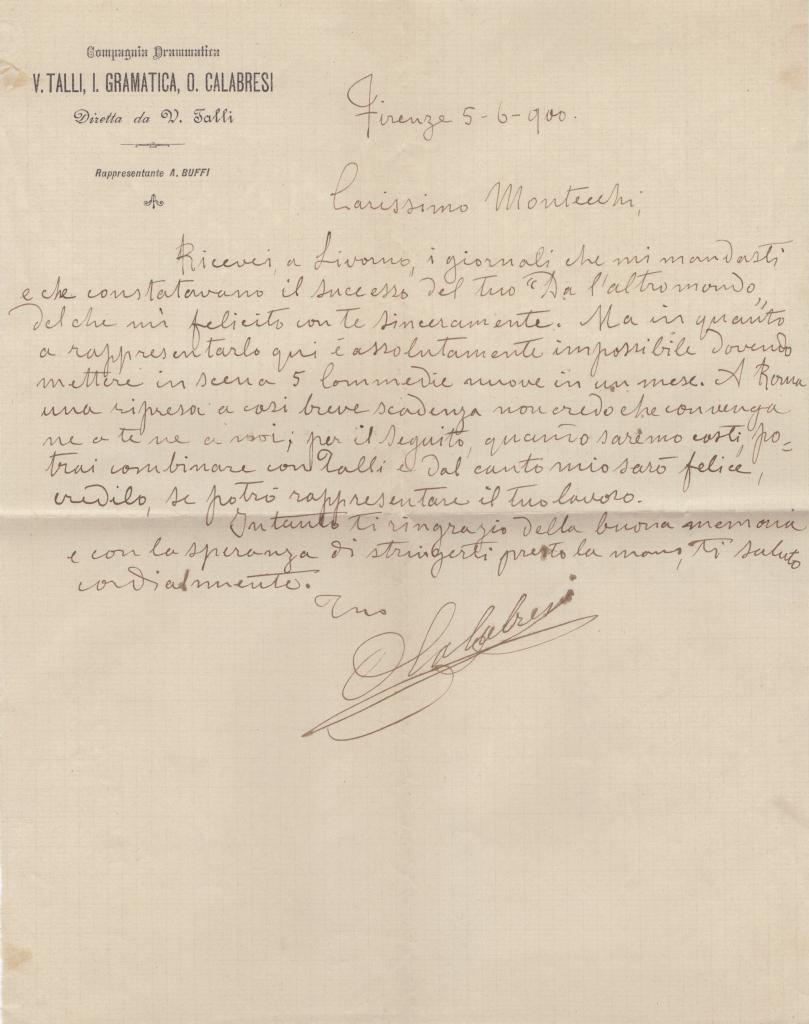 Compagnia Drammatica
V. TALLI, I. GRAMATICA, O. CALABRESI
Diretta da V. Talli
Rappresentante A. BUFFI
Firenze 5-6-900.
Carissimo Montecchi,
Ricevei, a Livorno, i giornali che mi mandasti
e che constatavano il successo del tuo "Da l'altro mondo„
del che mi felicito con te sinceramente. Ma in quanto
a rappresentarlo qui è assolutamente impossibile dovendo
mettere in scena 5 Commedie nuove in un mese. A Roma
una ripresa a così breve scadenza non credo che convenga
ne a te ne a noi; per il seguito, quando saremo costì, po=
trai combinare con Talli e dal canto mio sarò felice,
credilo, se potrò rappresentare il tuo lavoro.
Intanto ti ringrazio della buona memoria
e con la speranza di stringerti presto la mano, ti saluto
cordialmente.
Tuo
OCalabresi